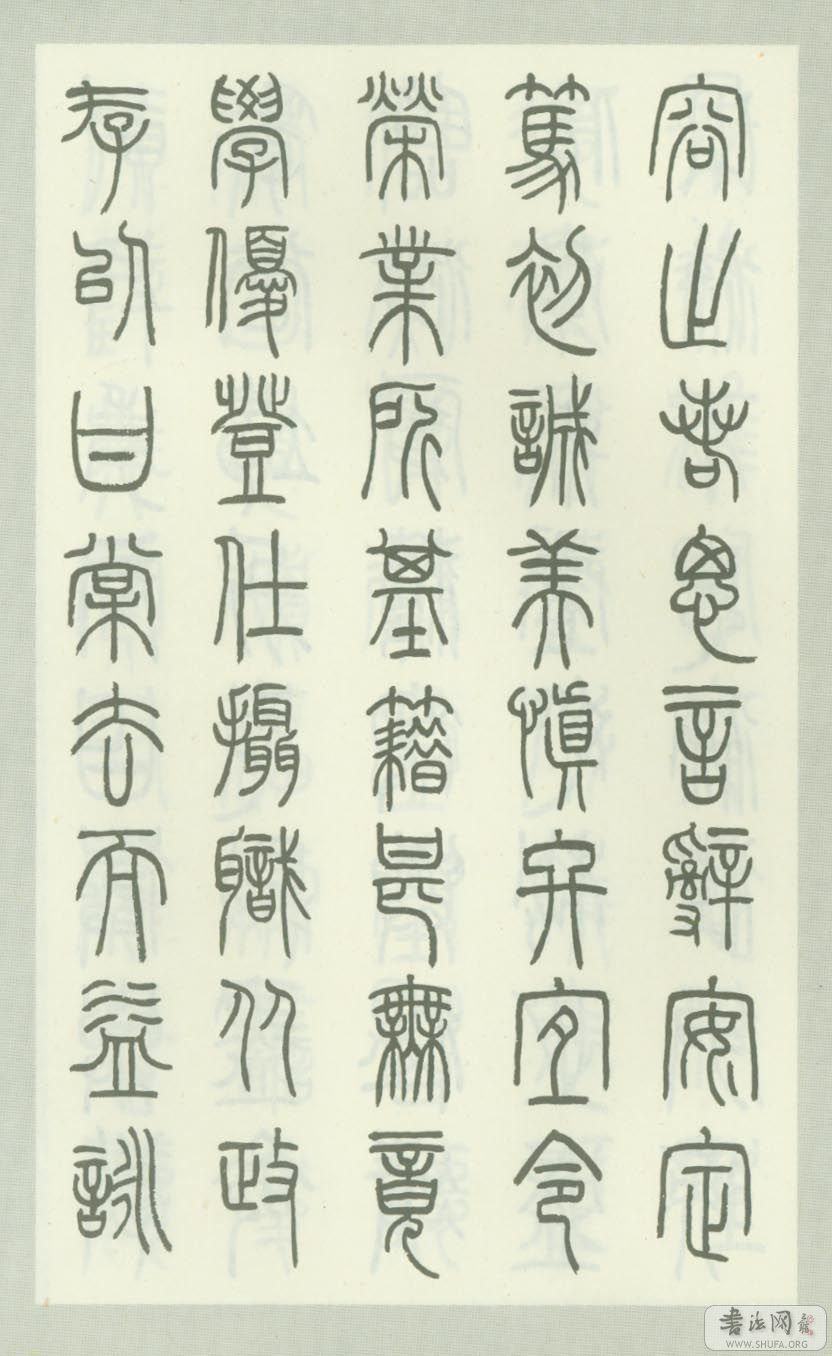 容止若思言辭安定
篤初誠美慎終宜令
榮業所基籍甚無竟
學優登仕攝職從政
存以甘棠去而益詠
書法网
WWW.SHUFA.ORG